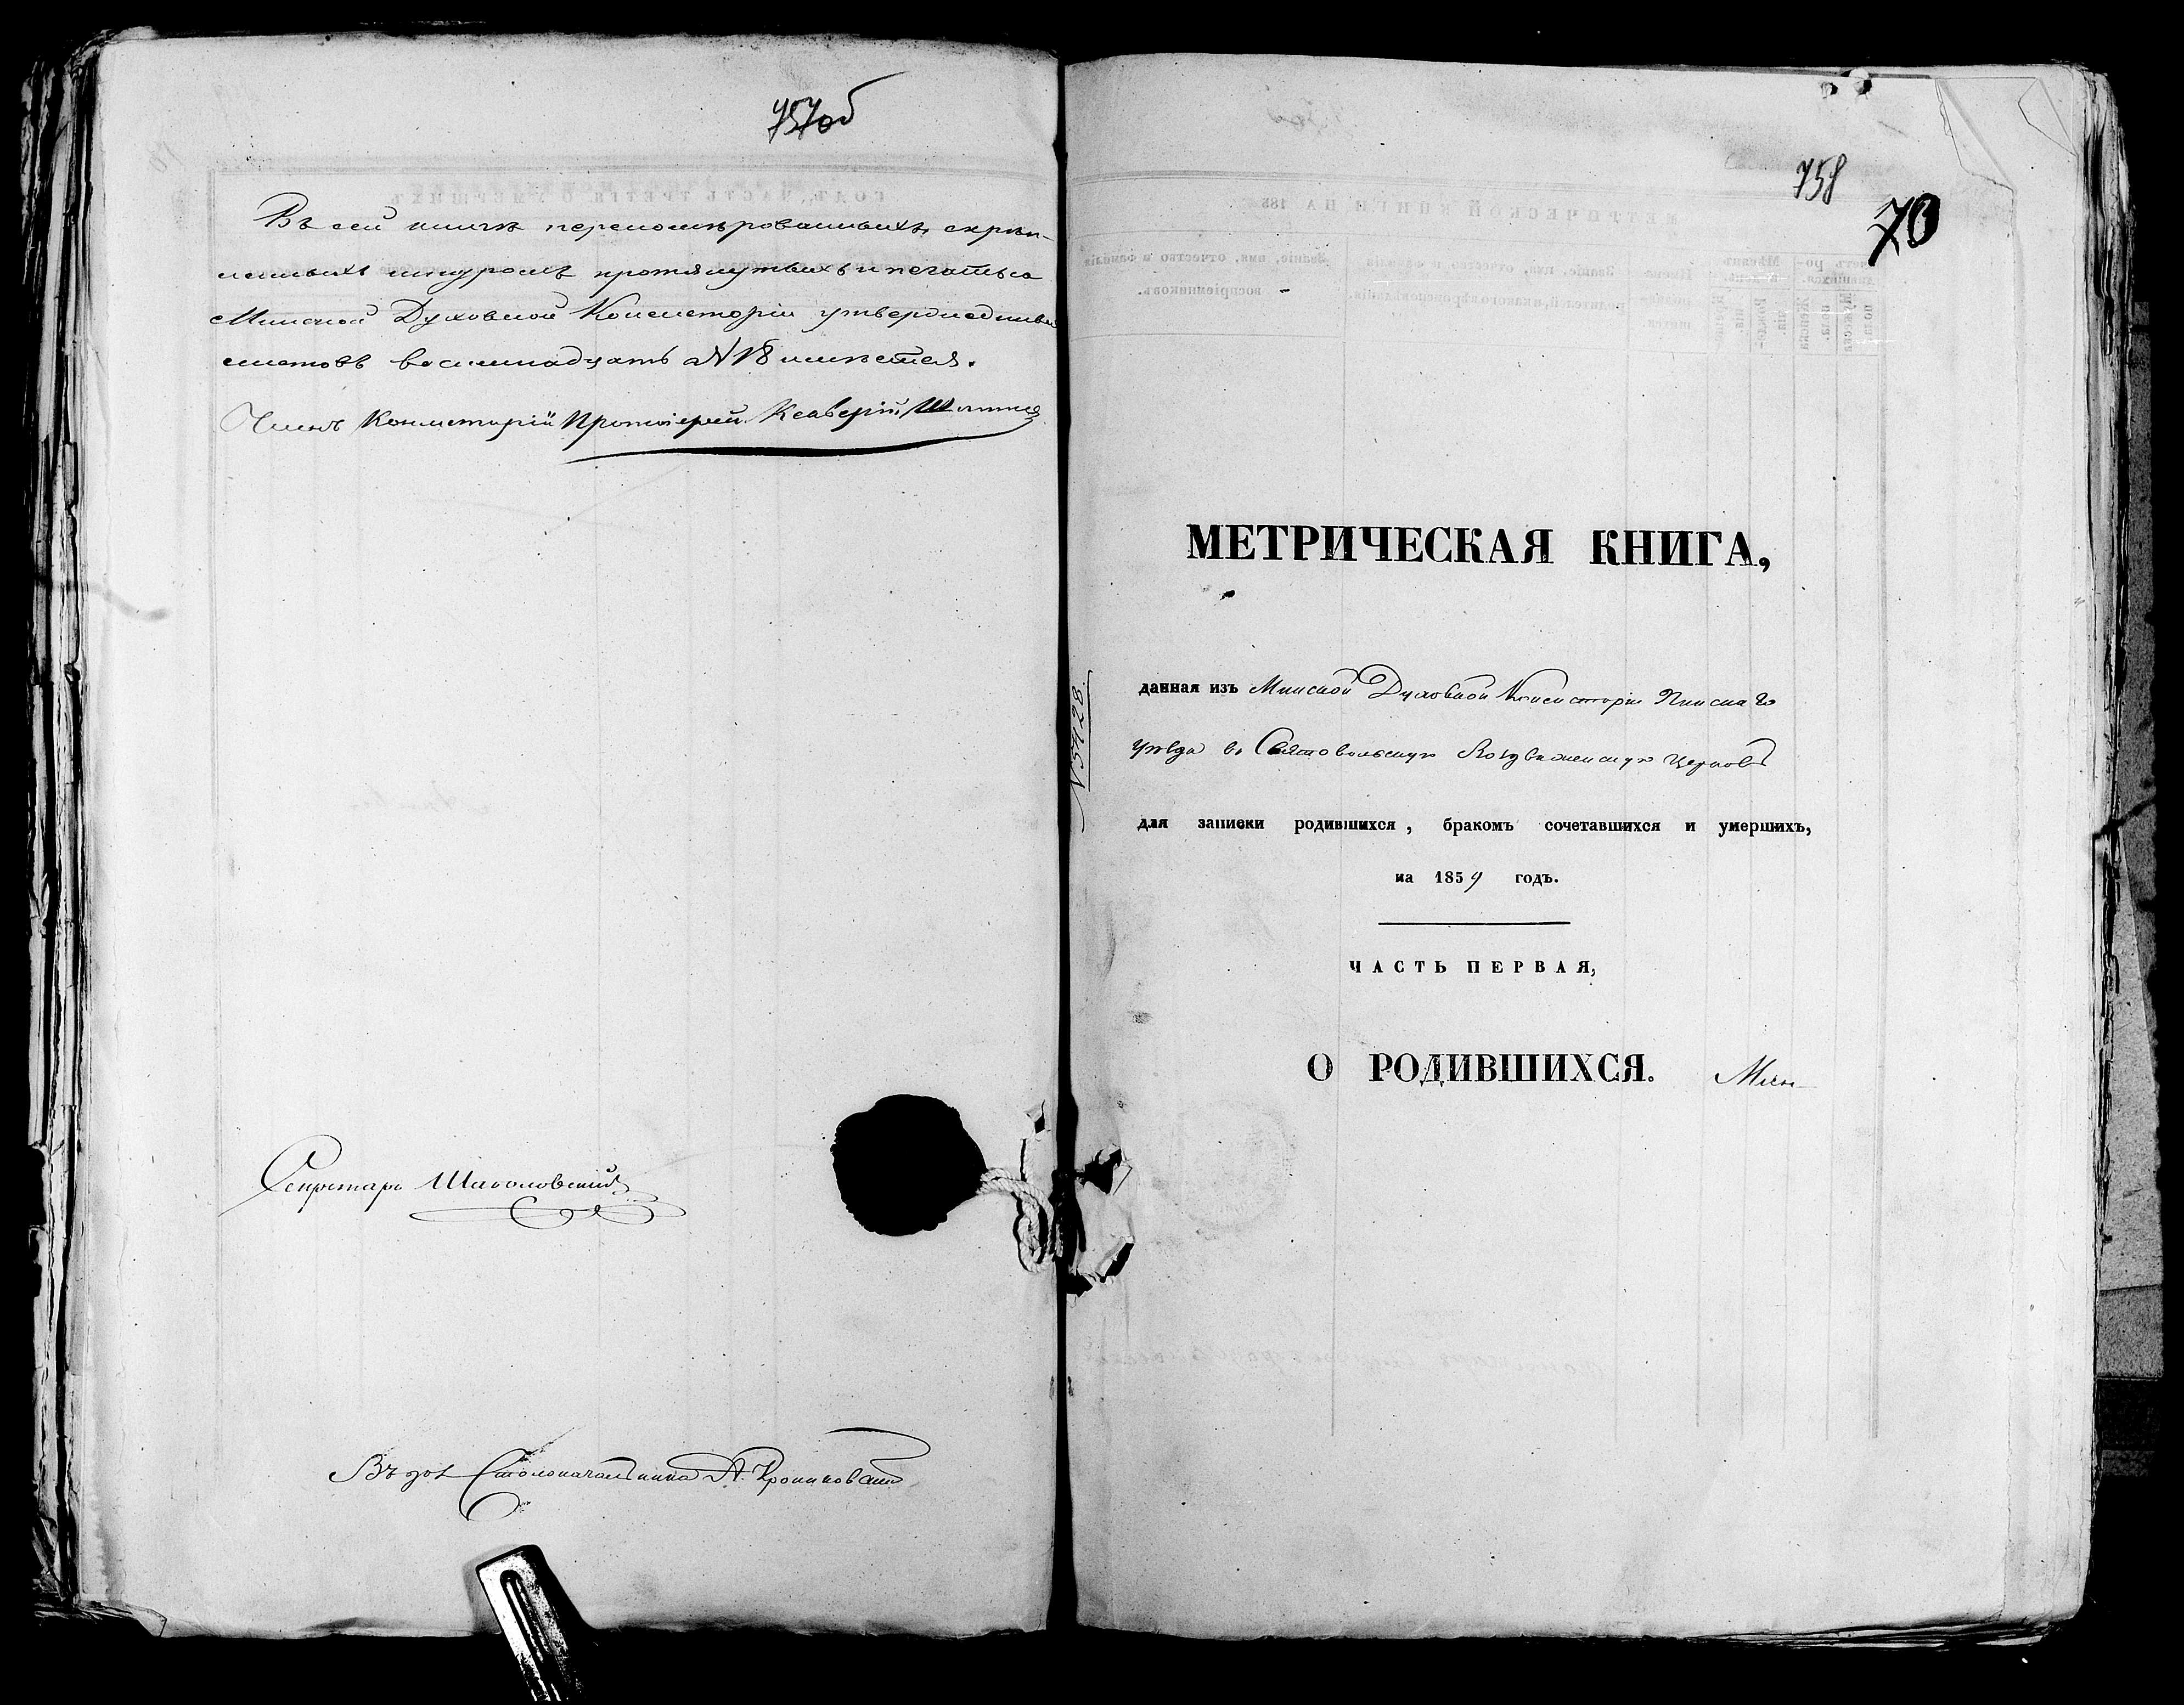 757об
Въ сей книгѣ перенумѣрованныхъ, скрѣп-
ленныхъ шнуромъ протянутыхъ и печатью
Минской Духовной Консисторіи утвержденныхъ
листовъ восимнадцать а № 18 имѣется.
Членъ Консисторіи Протоіерей Ксаверій
Секретарь
Столоначальника А.
758
70
МЕТРИЧЕСКАЯ КНИГА,
данная изъ Минской Духовной Консисторіи Пинскаго
уѣзда въ Святовольскую Воздвиженскую Церковь
для записки родившихся, бракомъ сочетавшихся и умершихъ,
на 1859 годъ.
ЧАСТЬ ПЕРВАЯ,
О РОДИВШИХСЯ.
№ 5428